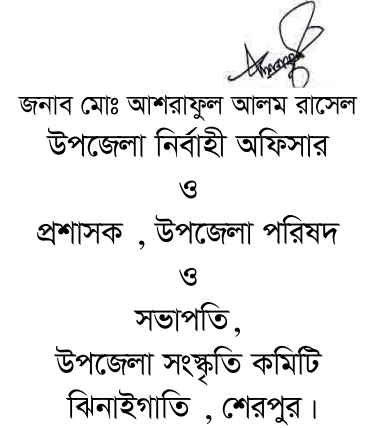 জনাব মোঃ আশরাফুল আলম রাসেল
উপজেলা নির্বাহী অফিসার
ও
প্রশাসক , উপজেলা পরিষদ
ও
সভাপতি,
উপজেলা সংস্কৃতি কমিটি
ঝিনাইগাতি , শেরপুর ।